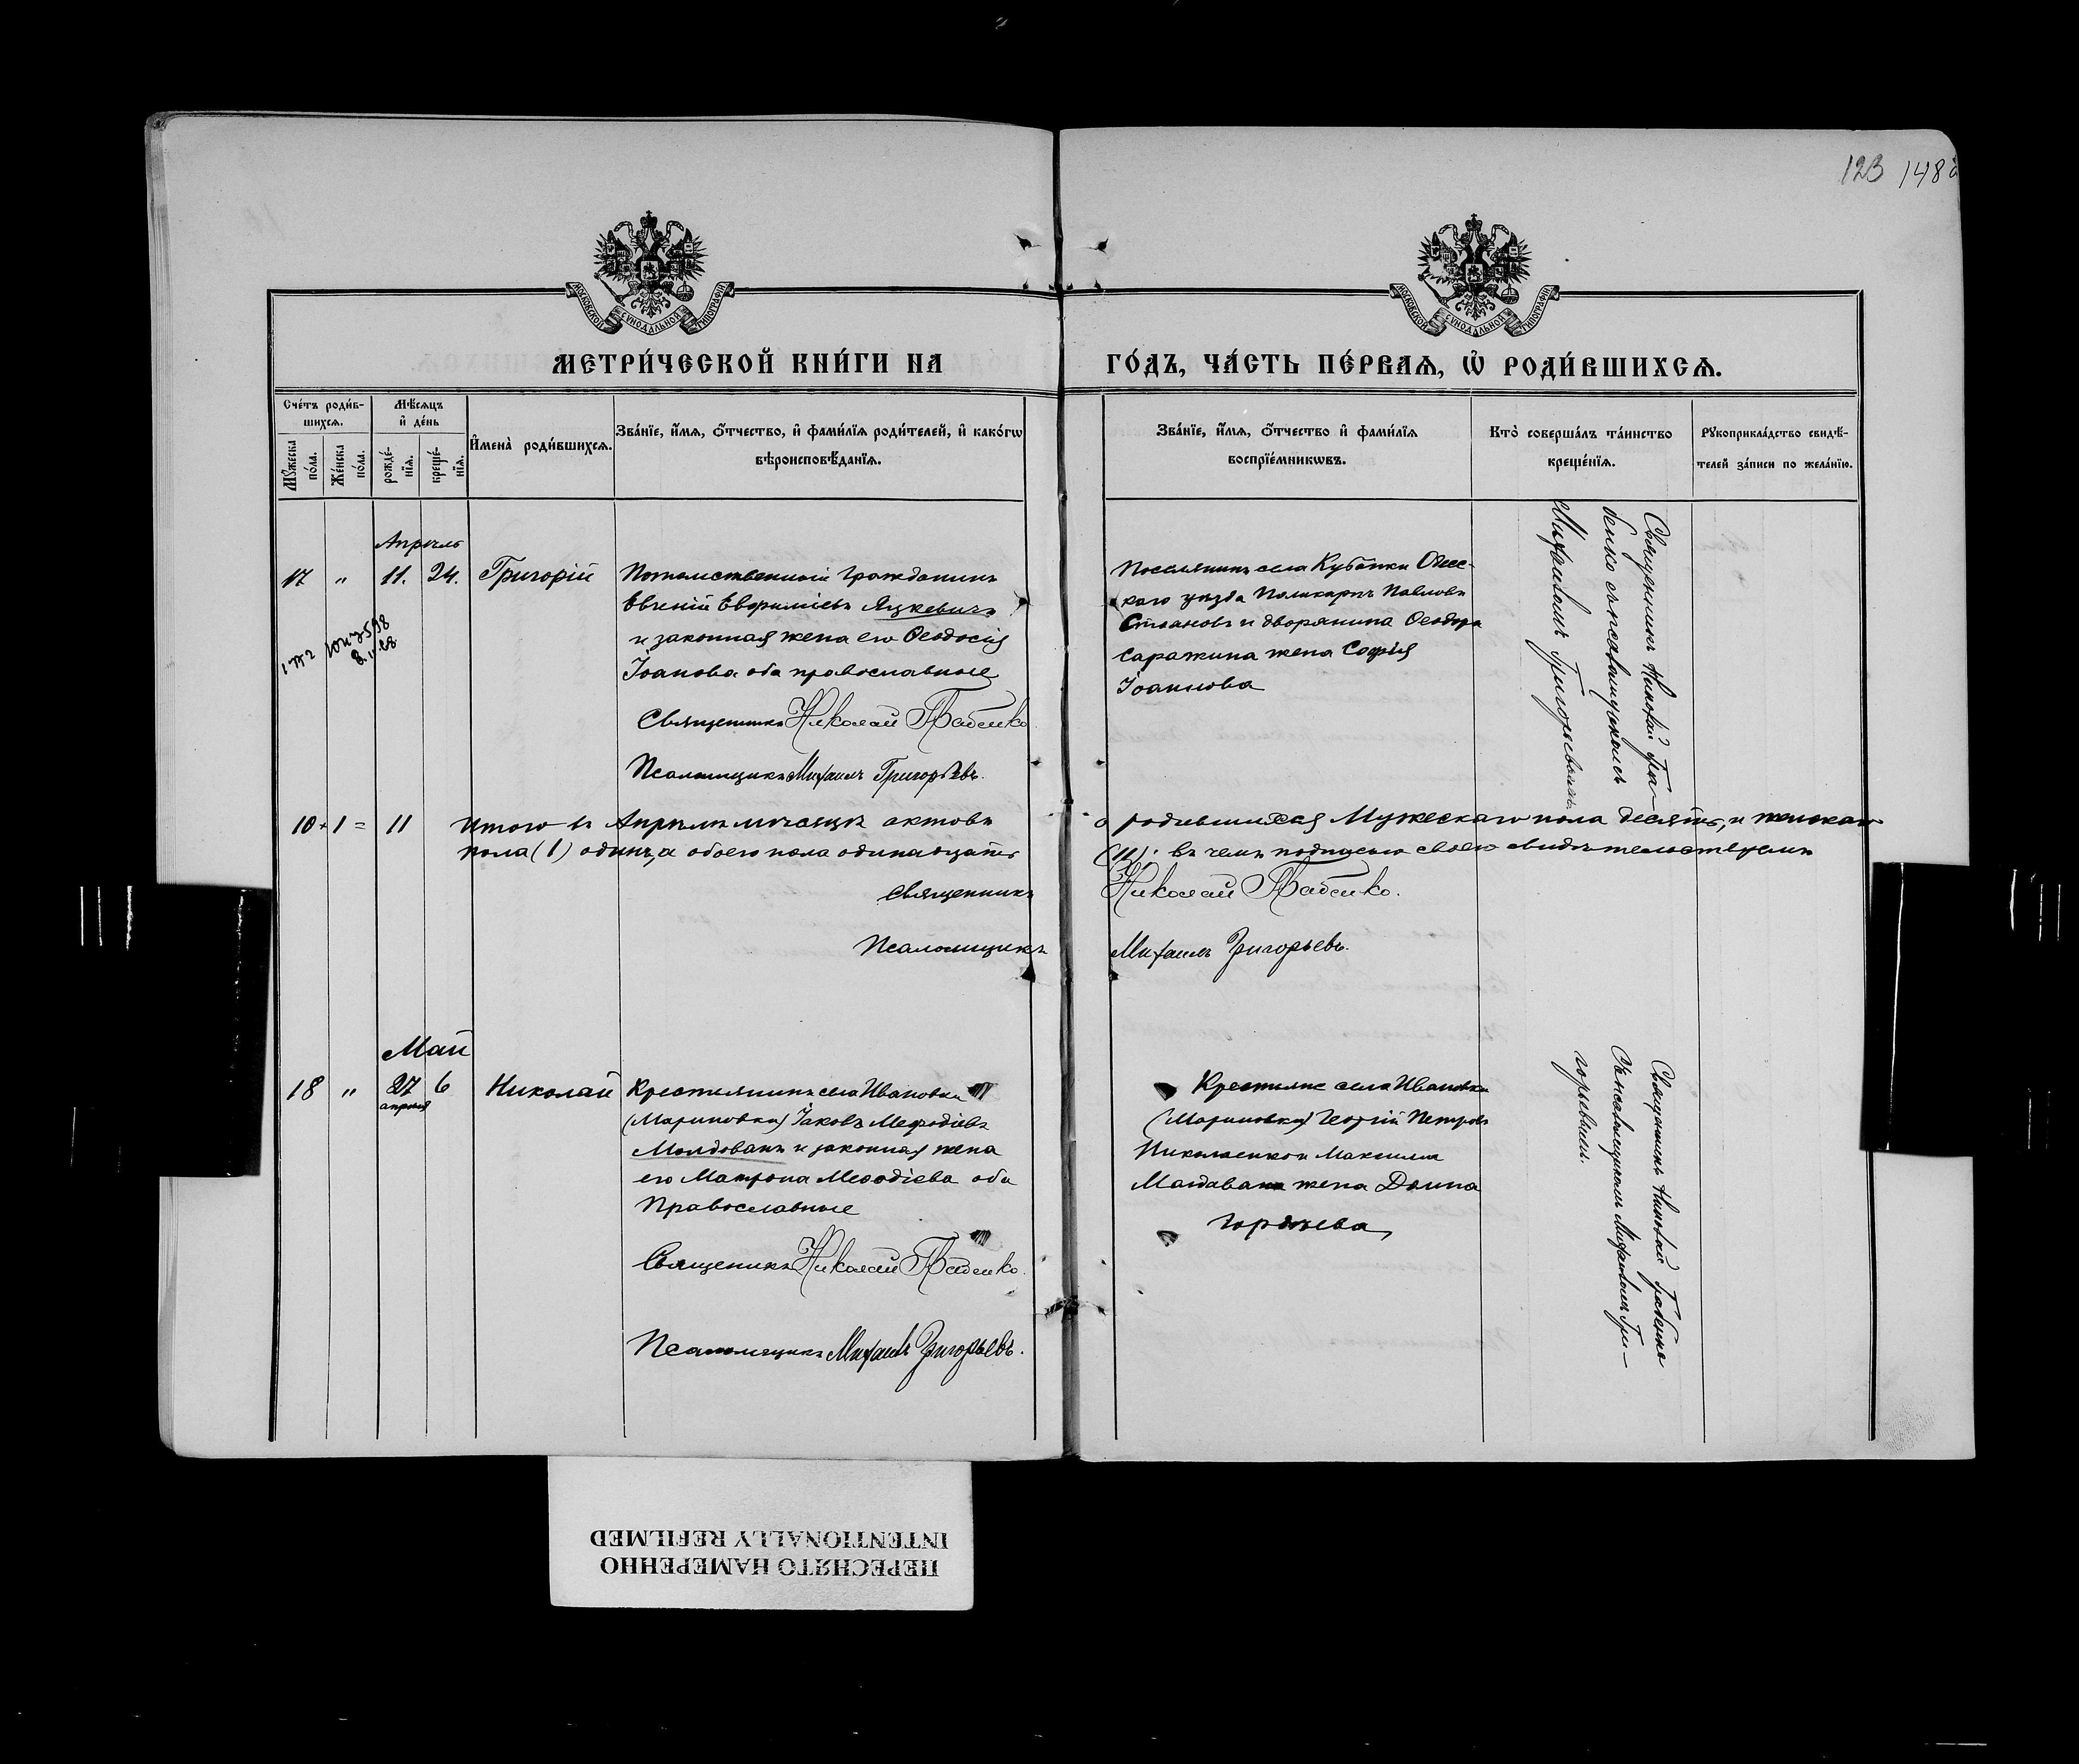 123 148
МОСКОВСКОЙ СѴНОДАЛЬНОЙ ТИПОГРАФІИ
МОСКОВСКОЙ СѴНОДАЛЬНОЙ ТИПОГРАФІИ
МЕТРИ́ЧЕСКОЙ КНИ́ГИ НА ГО́ДЪ, ЧА́СТЬ ПЕ́РВАѦ, Ѡ҆ РОДИ́ВШИХСѦ.
Сче́тъ роди́в-
шихсѧ.
Мꙋ́жеска
по́ла.
Же́нска
по́ла.
Мѣ́сѧцъ
и҆ де́нь
рожде́-
нїѧ.
креще́-
нїѧ.
И҆мена̀ роди́вшихсѧ.
Зва́нїе, и҆́мѧ, ѻ҆́тчество, и҆ фами́лїѧ роди́телей, и҆ како́гѡ
вѣроисповѣ́данїѧ.
Зва́нїе, и҆́мѧ, ѻ҆́тчество и҆ фами́лїѧ
воспрїе́мникѡвъ.
Кто̀ соверша́лъ та́инство
креще́нїѧ.
Рꙋкоприкла́дство свидѣ́-
телей за́писи по жела́нїю.
Апрѣль
17 " 11. 24. Григорій
Потомственный гражданинъ
Евгеній Евфиміевъ Яцкевичъ
и законная жена его Ѳеодосія
Іоанова оба православные
Священникъ Николай Грабенко
Псаломщикъ Михаилъ Григорьевъ.
Поселянинъ села Кубанки Одес-
каго уѣзда Поликарпъ Павловъ
Стоановъ и дворянина Ѳеодора
Саражина жена Софія
Іоаннова
Священникъ Николай Гра-
бенко съ псаломщикомъ
Михаиломъ Григорьевымъ
10 + 1 = 11 Итого въ Апрѣлѣ мѣсяцѣ актовъ о родившихся Мужескаго пола десять, и женскаго
пола (1) одинъ, а обоего пола одинадцать (11). въ чемъ подписью своею свидѣтельствуемъ
Священникъ Николай Грабенко.
Псаломщикъ Михаилъ Григорьевъ.
Май
18 " 27 6 Николай
апреля
Крестьянинъ села Ивановки
(Мариновки) Іаковъ Меѳодіевъ
Молдованъ и законная жена
его Матрона Меѳодіева оба
Православные
Священникъ Николай Грабенко.
Псаломщикъ Михаилъ Григорьевъ.
Крестьяне села Ивановки
(Мариновки) Георгій Петровъ
Николаенко и Максима
Молдавана жена Домна
Гордѣева
Священникъ Николай Грабенко
съ псаломщикомъ Михаиломъ Гри-
горьевымъ.
ПЕРЕСНЯТО НАМЕРЕННО
INTENTIONALLY REFILMED